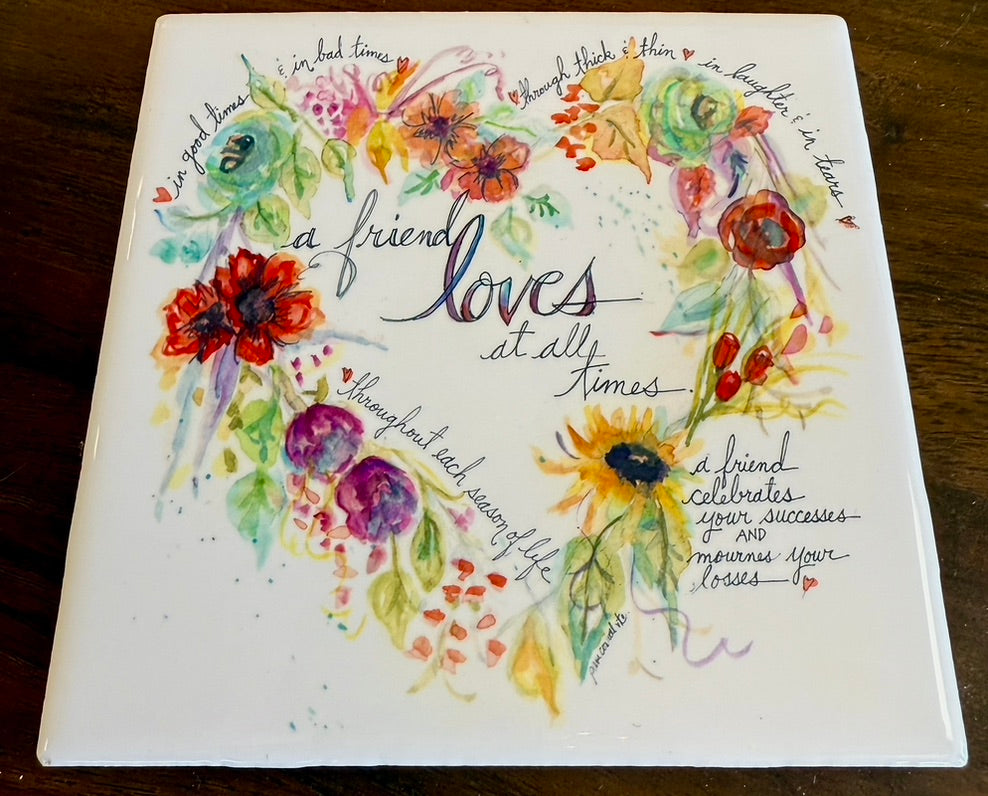 in good times
& in bad times
through thick & thin
in laughter & in tears
a friend
loves
at all
times.
throughout each season of life
a friend
celebrates
your successes
AND
mournes your
losses